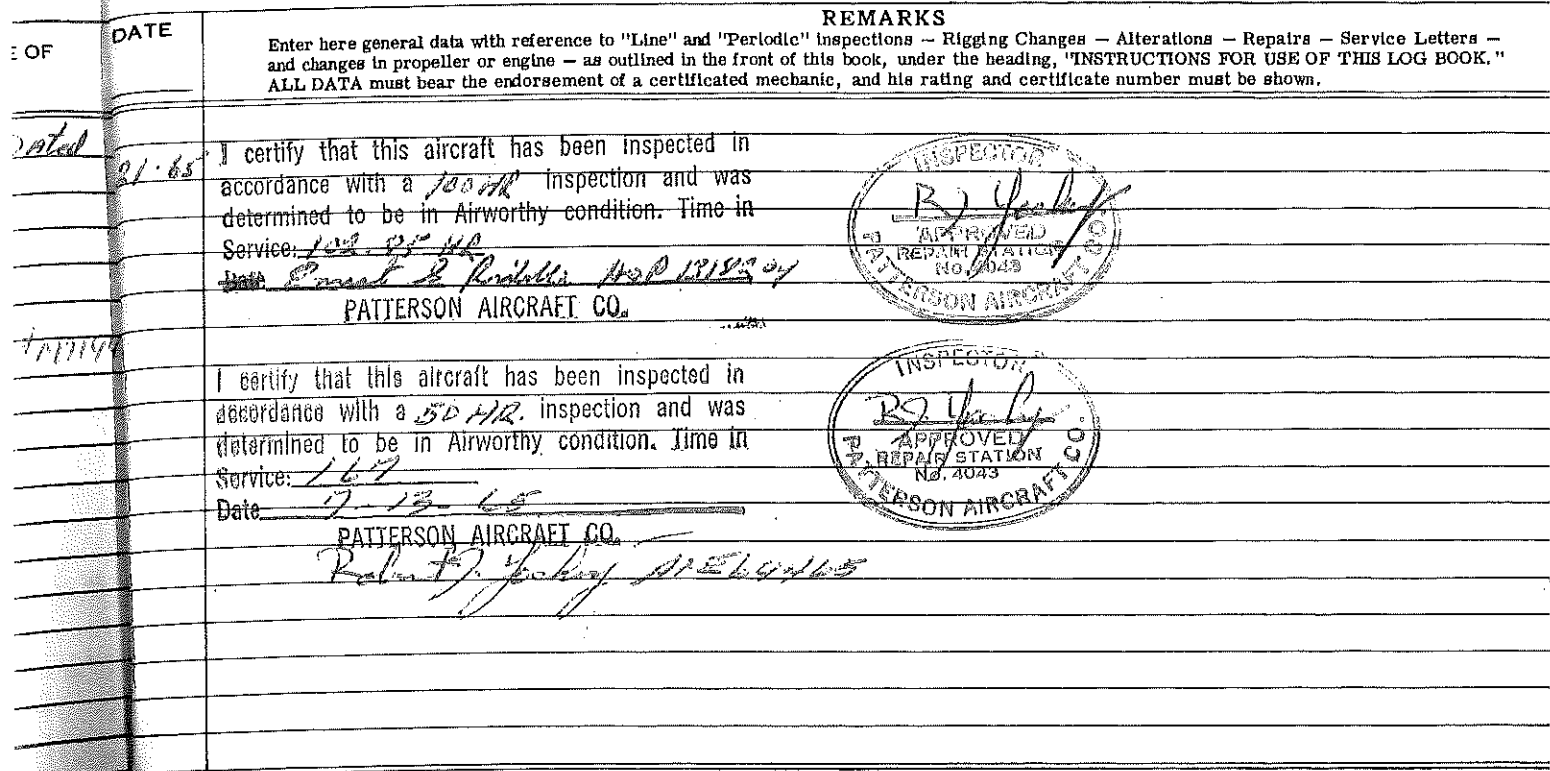 E OF
DATE
REMARKS
Enter here general data with reference to "Line" and "Periodic" inspections — Rigging Changes — Alterations — Repairs — Service Letters —
and changes in propeller or engine — as outlined in the front of this book, under the heading, "INSTRUCTIONS FOR USE OF THIS LOG BOOK."
ALL DATA must bear the endorsement of a certificated mechanic, and his rating and certificate number must be shown.
Dated
21-65
I certify that this aircraft has been inspected in
accordance with a 100 HR inspection and was
determined to be in Airworthy condition. Time in
Service: 102.85 HR
Date Ernest
PATTERSON AIRCRAFT CO.
INSPECTOR
APPROVED
REPAIR STATION
No. 4043
PATTERSON AIRCRAFT CO.
I certify that this aircraft has been inspected in
accordance with a 50 HR. inspection and was
determined to be in Airworthy condition. Time in
Service: 167
Date 7-13-65
PATTERSON AIRCRAFT CO.
Robert J.
INSPECTOR
APPROVED
REPAIR STATION
No. 4043
PATTERSON AIRCRAFT CO.